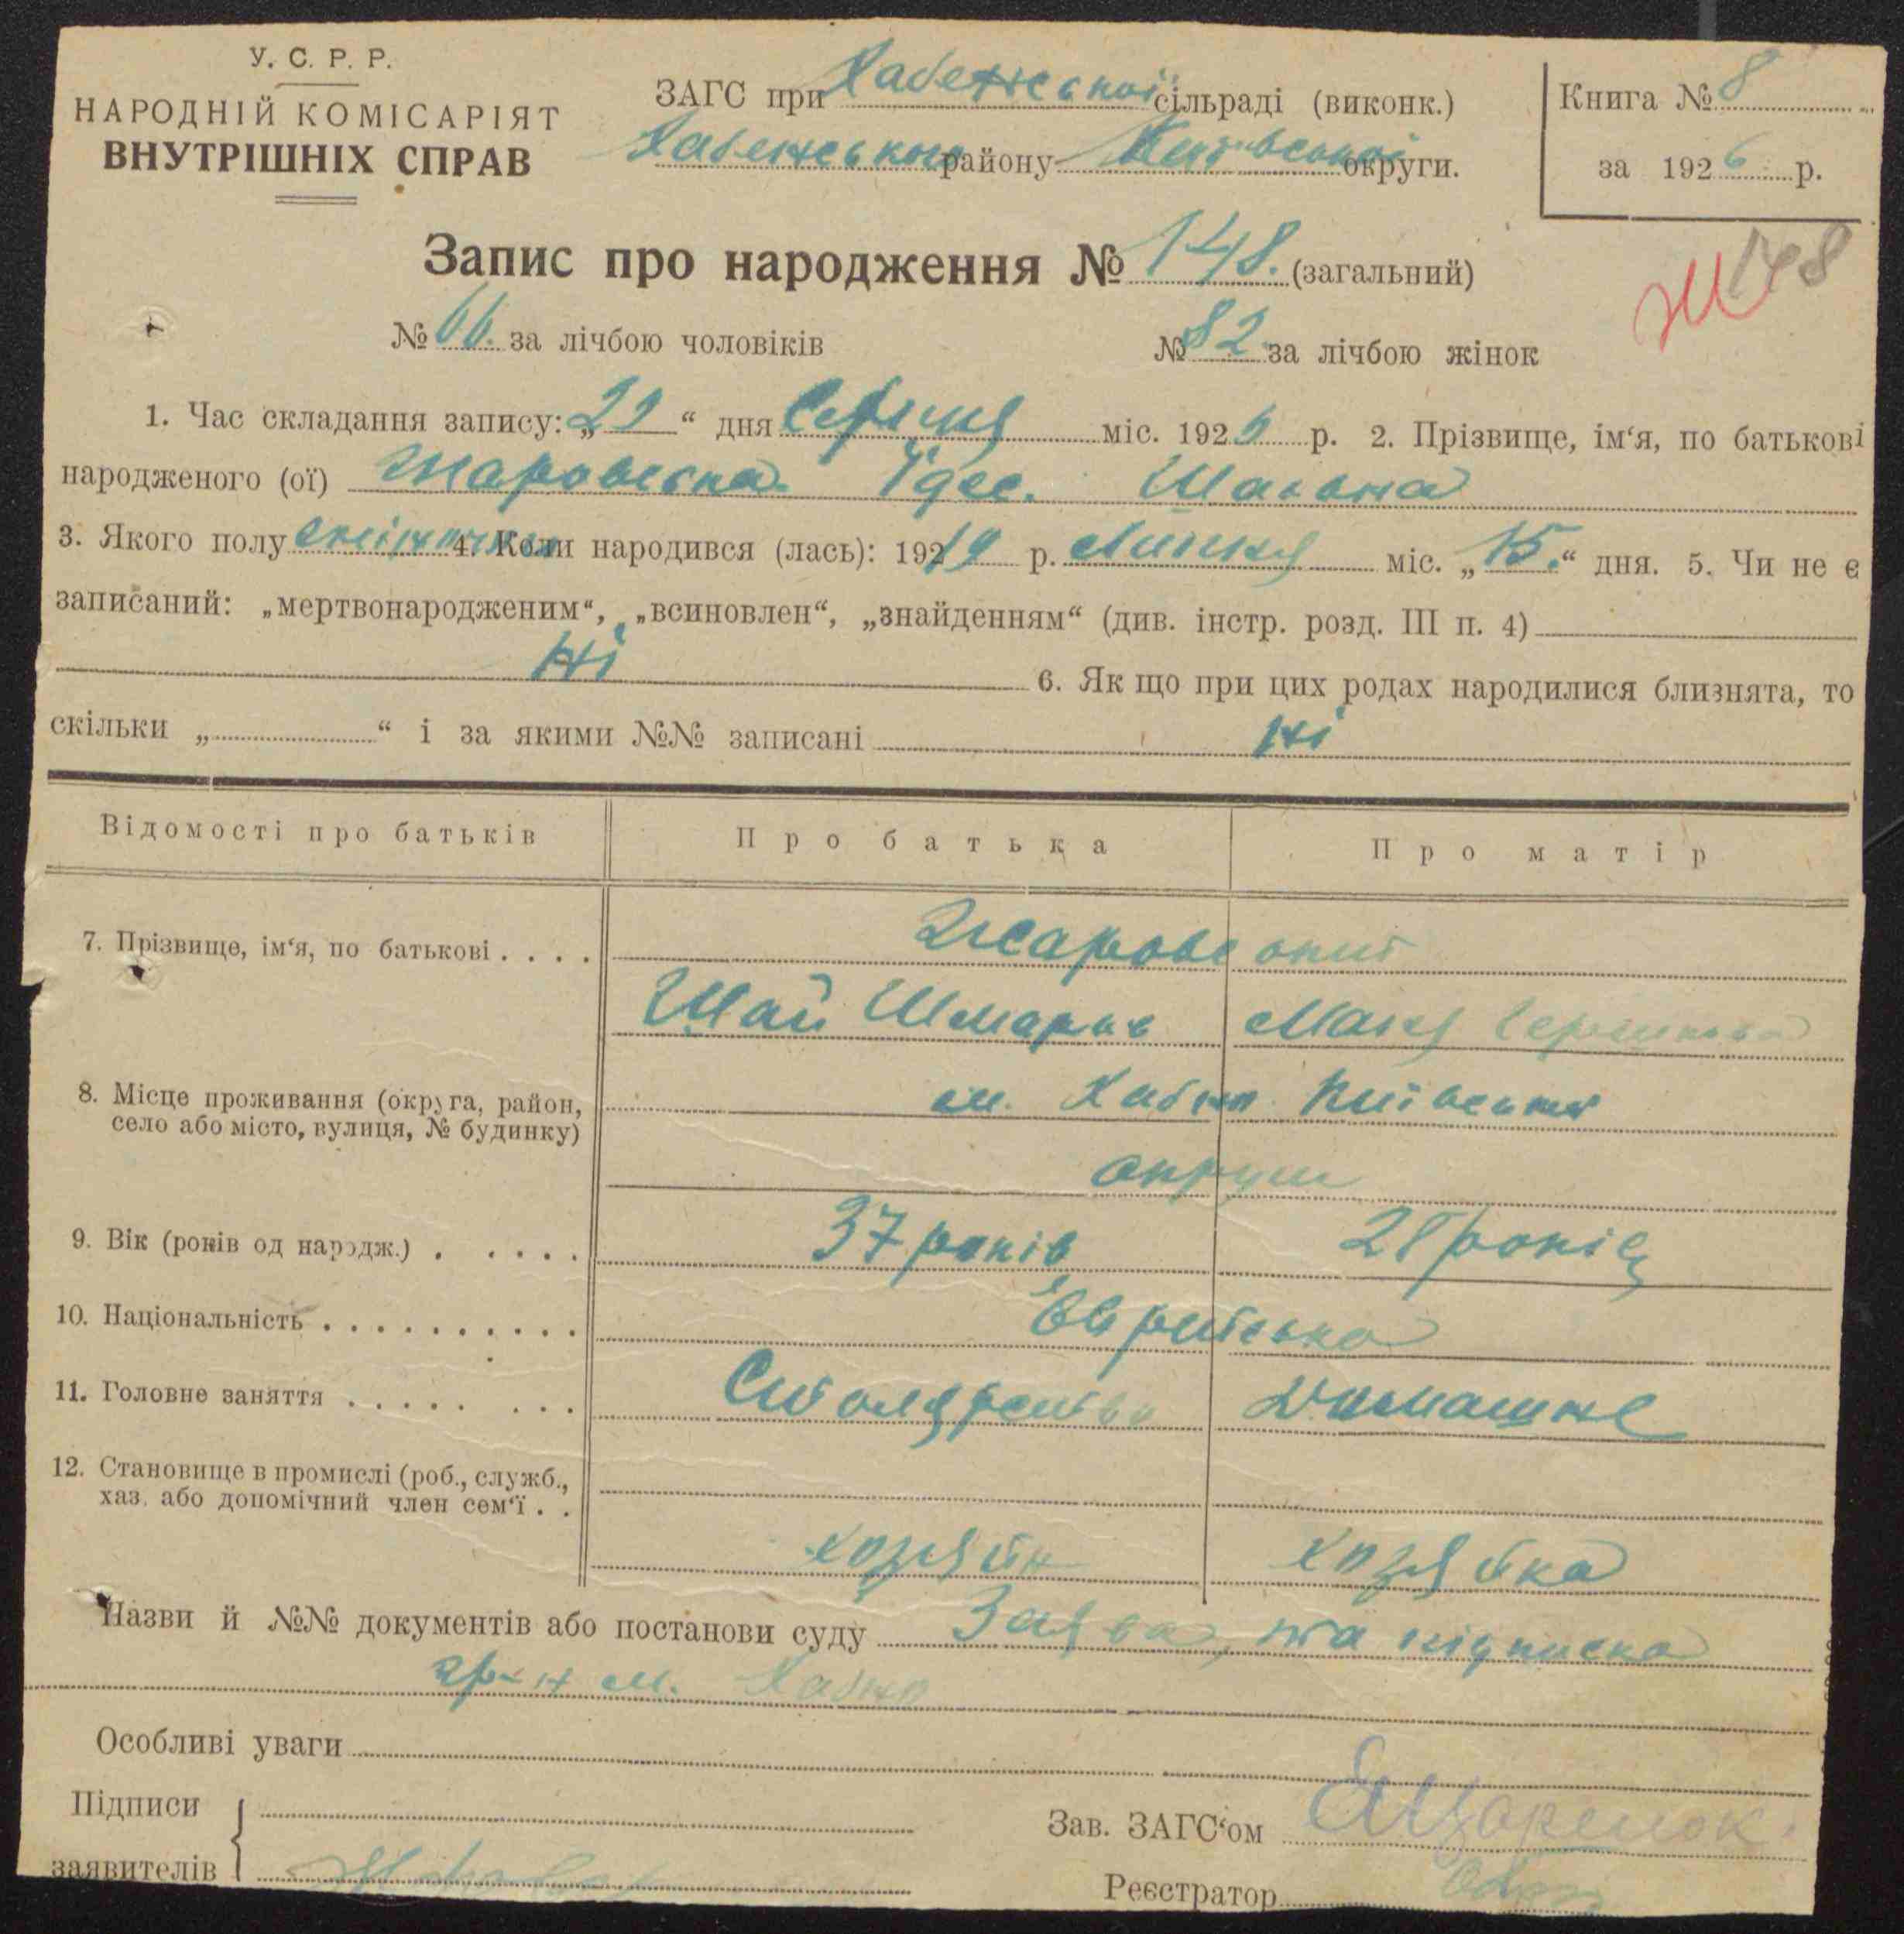 У. С. Р. Р.
НАРОДНІЙ КОМІСАРІЯТ
ВНУТРІШНІХ СПРАВ
ЗАГС при Хабенської сільраді (виконк.)
Хабенського району Київської округи.
Книга № 8
за 1926 р.
Запис про народження № 148. (загальний)
Ж 148
№ 66. за лічбою чоловіків № 82 за лічбою жінок
1. Час складання запису: „29“ дня Серпня міс. 1926 р. 2. Прізвище, ім‘я, по батькові
народженого (ої) Жаровська Ідес. Шаьова
3. Якого полу жіночого 4. Коли народився (лась): 1919 р. Липня міс. „15.“ дня. 5. Чи не є
записаний: „мертвонародженим“, „всиновлен“, „знайденням“ (див. інстр. розд. III п. 4)
Ні 6. Як що при цих родах народилися близнята, то
скільки „ “ і за якими №№ записані Ні
Відомості про батьків Про батька Про матір
7. Прізвище, ім‘я, по батькові . . . . Жаровський
Шай Шмарьов Мая Гершкова
8. Місце проживання (округа, район,
село або місто, вулиця, № будинку)
м. Хабно Київської
округи
9. Вік (років од народж.) . . . . . 37 років 28 років
10. Національність . . . . . . . . . . Єврейська
11. Головне заняття . . . . . . . . Столярство Домашнє
12. Становище в промислі (роб., служб.,
хаз. або допомічний член сем‘ї . .
хозяїн хозяйка
Назви й №№ документів або постанови суду Заява, та підписка
гр-н м. Хабно
Особливі уваги
Підписи
заявителів
Зав. ЗАГС‘ом
Реєстратор